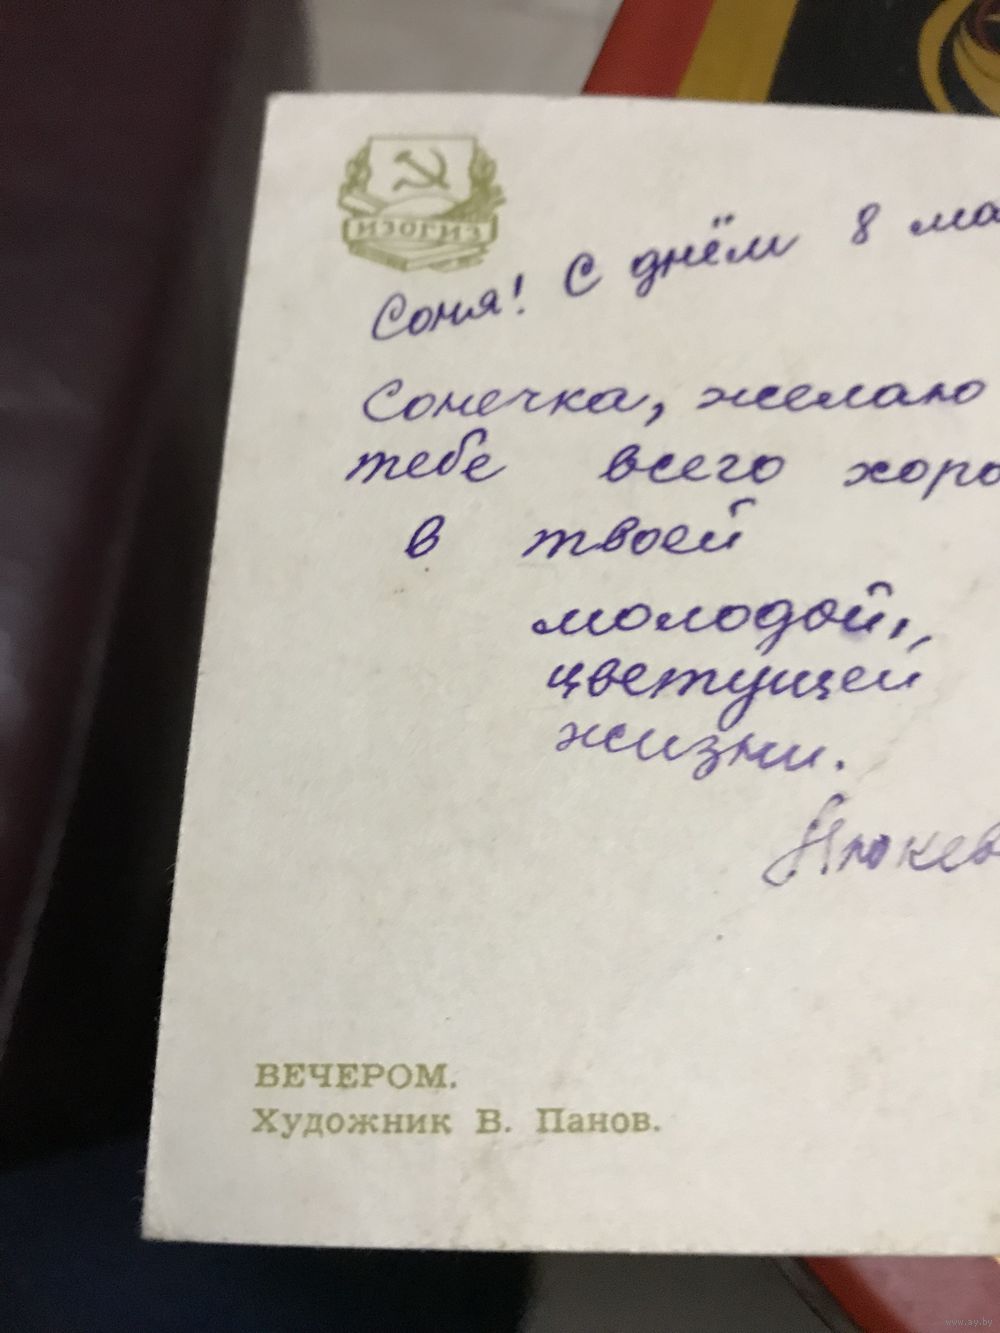 ИЗОГИЗ
Соня! С днём 8 ма
Сонечка, желаю
тебе всего хоро
в твоей
молодой,
цветущей
жизни.
ВЕЧЕРОМ.
Художник В. Панов.
www.ay.by